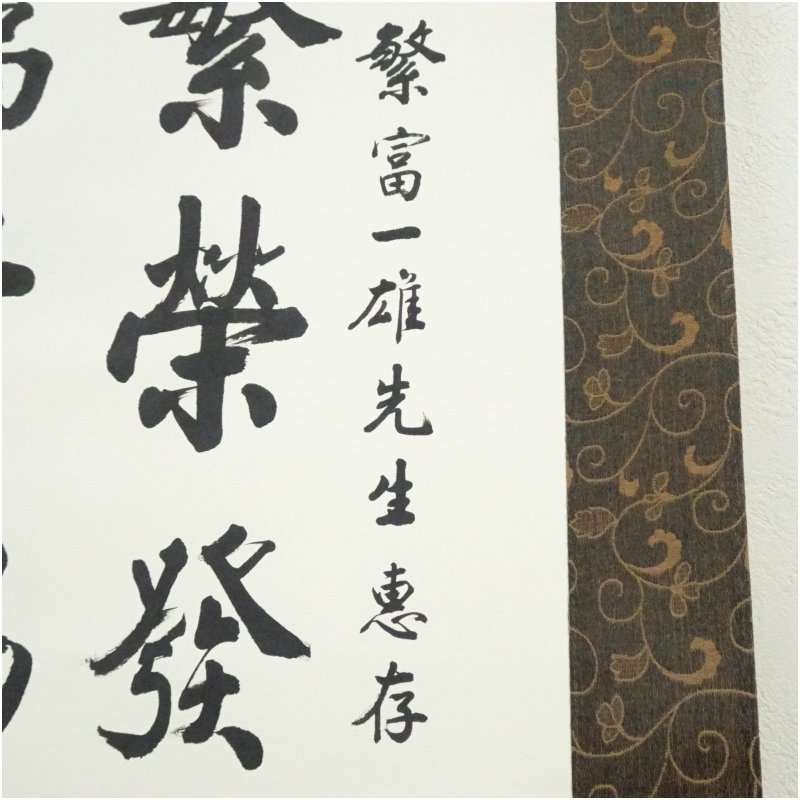 繁富一雄先生惠存
繁榮發